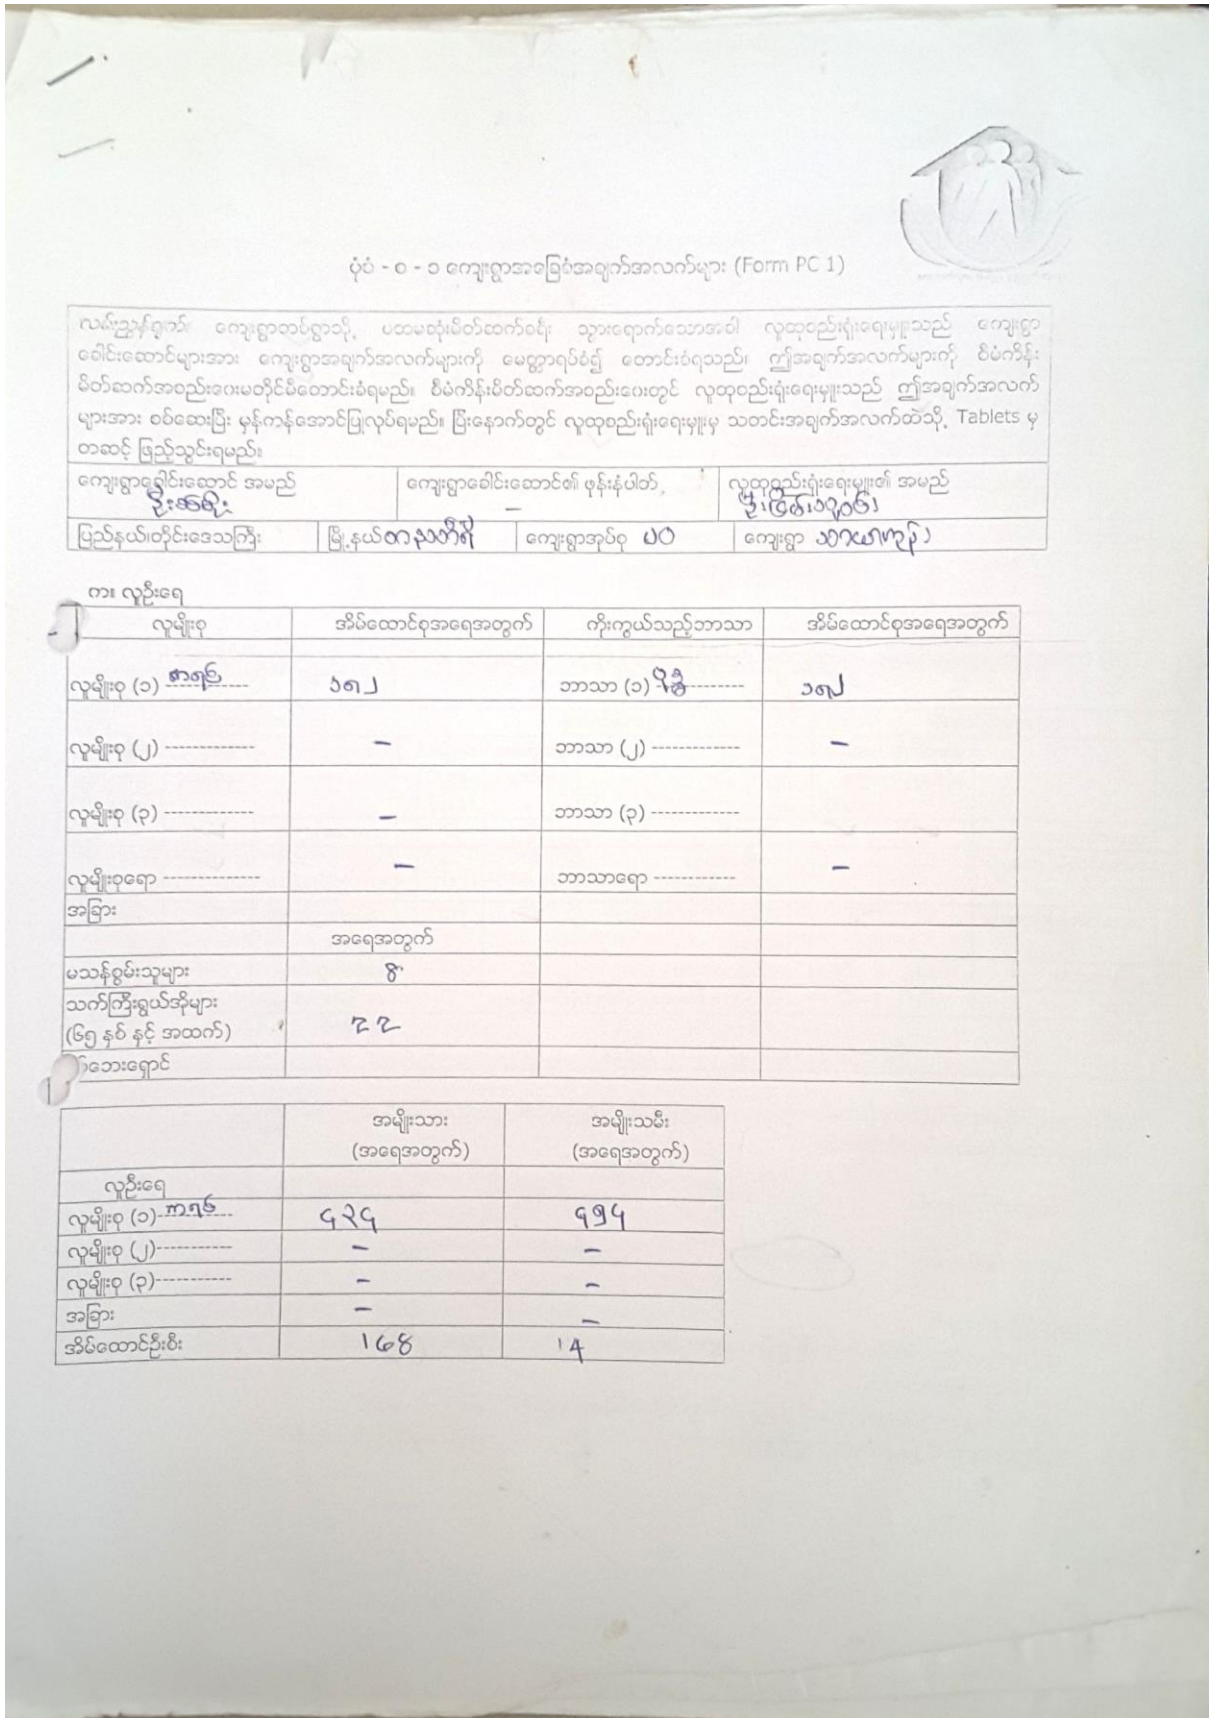 ပုံစံ - ၀ - ၁ ကျေးရွာအခြေခံအချက်အလက်များ (Form PC 1)
လမ်းညွှန်ချက်၊ ကျေးရွာအုပ်စုသို့ ပထမဆုံးမိတ်ဆက်ခရီး သွားရောက်သောအခါ လူထုစည်းရုံးရေးမှူးသည် ကျေးရွာ
ခေါင်းဆောင်များအား ကျေးရွာအချက်အလက်များကို မေတ္တာရပ်ခံ၍ တောင်းခံရသည်၊ ဤအချက်အလက်များကို စီမံကိန်း
မိတ်ဆက်အစည်းဝေးမတိုင်မီတောင်းခံရမည်။ စီမံကိန်းမိတ်ဆက်အစည်းဝေးတွင် လူထုစည်းရုံးရေးမှူးသည် ဤအချက်အလက်
များအား စစ်ဆေးပြီး မှန်ကန်အောင်ပြုလုပ်ရမည်။ ပြီးနောက်တွင် လူထုစည်းရုံးရေးမှူးမှ သတင်းအချက်အလက်ထဲသို့ Tablets မှ
တဆင့် ဖြည့်သွင်းရမည်။
ကျေးရွာခေါင်းဆောင် အမည် ကျေးရွာခေါင်းဆောင်၏ ဖုန်းနံပါတ် - လူထုစည်းရုံးရေးမှူး၏ အမည်
ပြည်နယ်၊တိုင်းဒေသကြီး မြို့နယ် တနင်္သာရီ ကျေးရွာအုပ်စု ပဝ ကျေးရွာ
က။ လူဦးရေ
လူမျိုးစု အိမ်ထောင်စုအရေအတွက် ကိုးကွယ်သည့်ဘာသာ အိမ်ထောင်စုအရေအတွက်
လူမျိုးစု (၁) ကရင် ၁၈၂ ဘာသာ (၁) ဗုဒ္ဓ ၁၈၂
လူမျိုးစု (၂) ------------- - ဘာသာ (၂) ------------- -
လူမျိုးစု (၃) ------------- - ဘာသာ (၃) -------------
လူမျိုးစုရော -------------- - ဘာသာရော ------------ -
အခြား
အရေအတွက်
မသန်စွမ်းသူများ 8
သက်ကြီးရွယ်အိုများ
(၆၅ နှစ် နှင့် အထက်) 22
ဘေးရှောင်
အမျိုးသား အမျိုးသမီး
(အရေအတွက်) (အရေအတွက်)
လူဦးရေ
လူမျိုးစု (၁) ကရင် ၄၃၄ ၄၅၄
လူမျိုးစု (၂)----------- - -
လူမျိုးစု (၃)----------- - -
အခြား - -
အိမ်ထောင်ဦးစီး 168 14